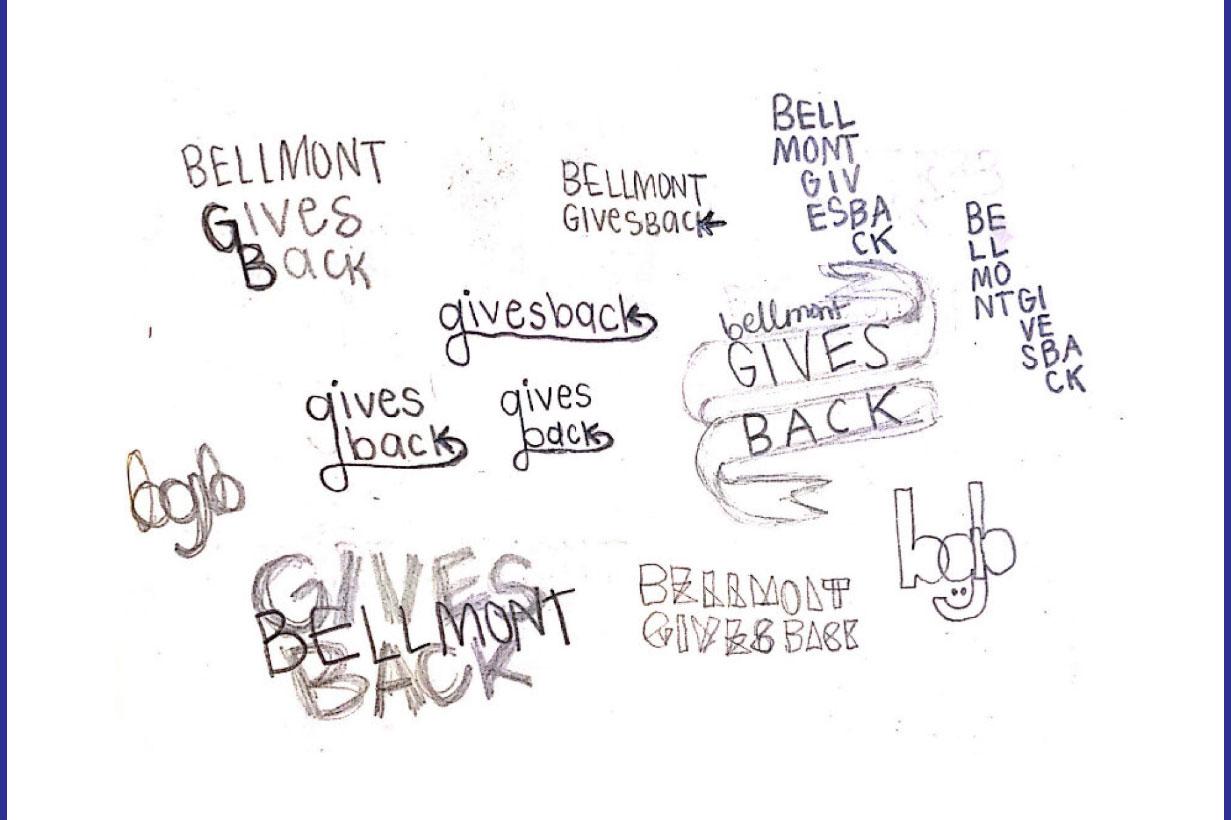 BELLMONT
Gives
Back
BELLMONT
GIVESBACK
BELL
MONT
GIV
ESBA
CK
BE
LL
MO
NTGI
VE
SBA
CK
givesback
bellmont
GIVES
BACK
gives
back
gives
back
bgb
bgb
GIVES
BELLMONT
BACK
BELLMONT
GIVES BACK